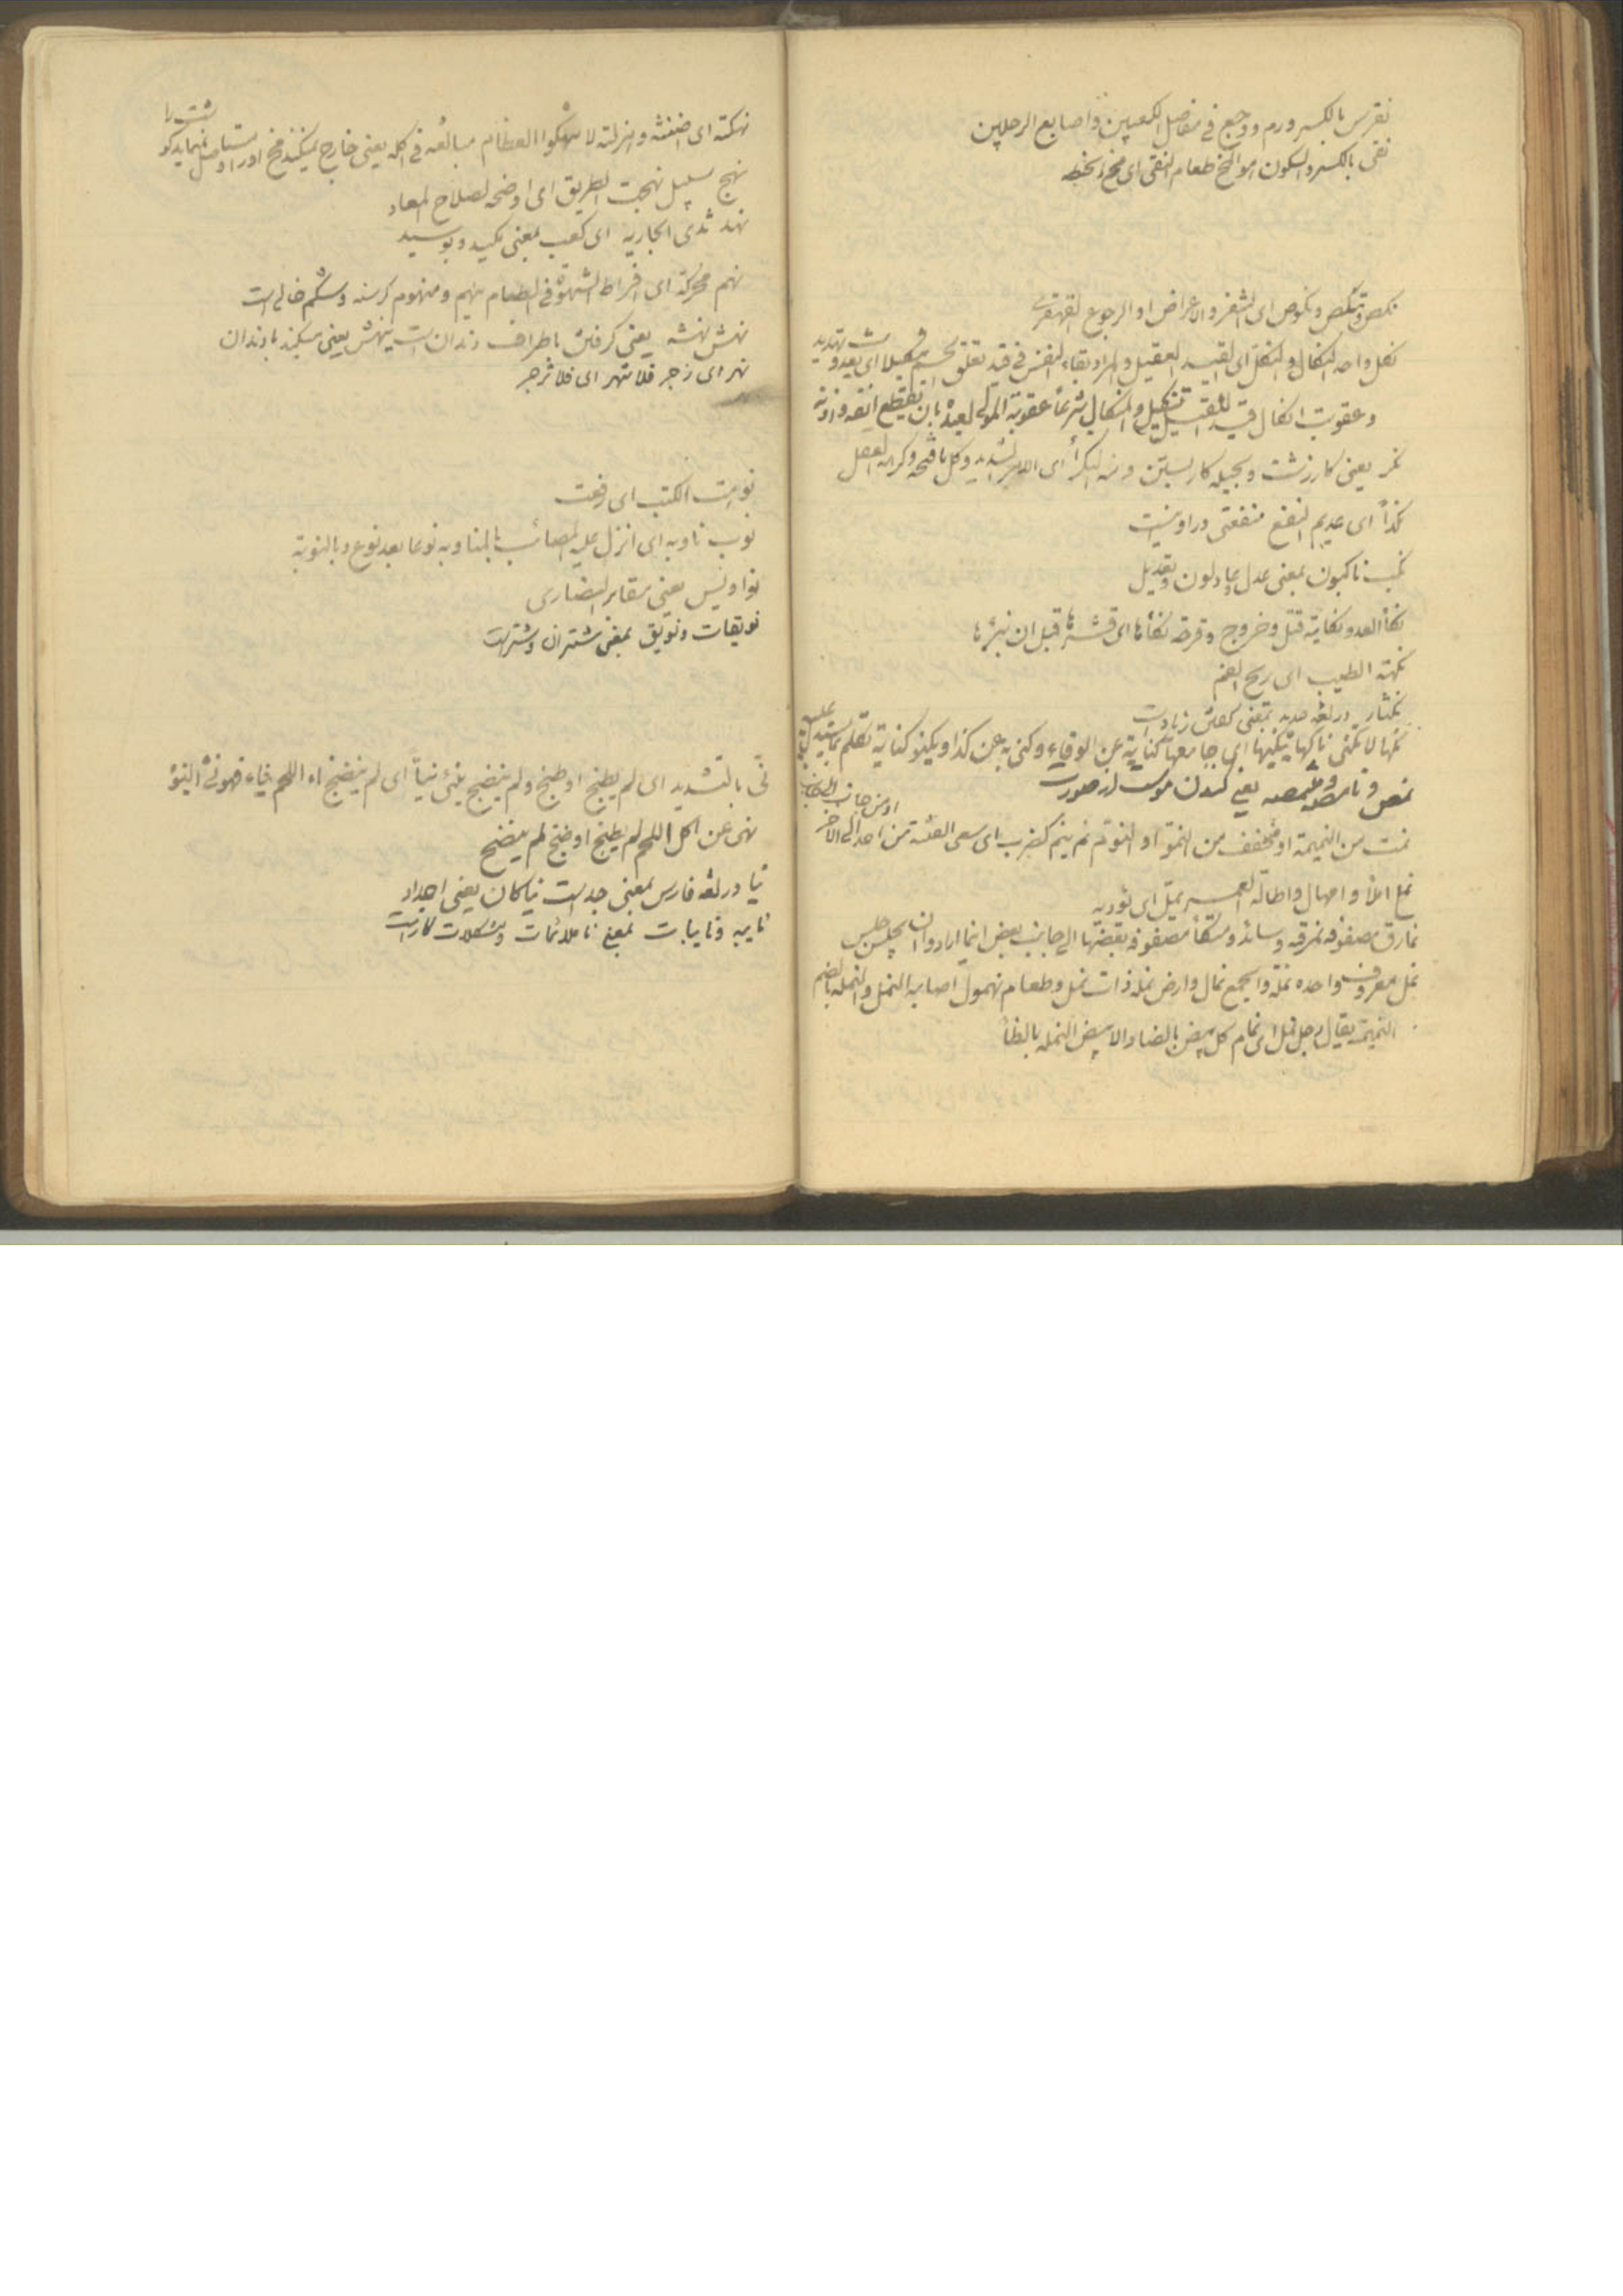 نقرس بالکسر ورم و وجع فی مفاصل الکعبین و اصابع الرجلین
نقی بالکسر و السکون هو المخ طعام النقی ای مخ الحنطه
نکص و تنکص و نکوص ای و الاعراض او الرجوع القهقری
نکل واحد النکال و النکل ای القید الثقیل و المراد بقاء النفس فی قید تعلق الجسم
و عقوبت انکال قید تنکیل و النکال شرعاً عقوبة المولی لعبده بان یقطع انفه و اذنه
نکر یعنی کار زشت و بحیله کار بستن و منه النکراء ای الامر الشدید و کل ما قبحه و کرهه العقل
نکداً ای عدیم النفع منفعتی در او نیست
نکب ناکبون بمعنی عدل و عادلون و تعدیل
نکأ العدو نکایة قتل و جروح و قرحة نکأها ای قشرها قبل ان تبرء
نکهته الطیب ای ریح الفم
نکثار در لغه بمعنی کفتن زیاد است
نکها لا تکنی ناکها ینکیها ای جامعها کنایة عن الوقاع و کنی به عن کذا و یکنو کنایة تکلم بما یستدل علیه
نمص و نامصه و متنمصه یعنی کندن موست از صورت
نمت من النمیمة او مخفف من النمو او النمو نم ینم کضرب ای سعی الفتنة من احد الی الاخر
نمل املأ و امهال و اطالة العمر
نمارق مصفوفه نمرقه وسائد و متکأ مصفوفة بعضها الی جانب بعض اینما ارادوا ان یجلس جلس
نمل معروف واحده نملة و الجمع نمال و ارض نملة ذات نمل و طعام نمول اصابه النمل و النملة بالضم
النمیمة یقال رجل نمل ای نمام کل بیض بالضاد الا بیض النمله بالظاء
نهکته ای اضنته و اهزلته لا تنهکوا العظام مبالغه فی اکله یعنی خارج نکنند مخ او را و
نهج سبیل نهجت الطریق ای اوضحه لصلاح المعاد
نهد ثدی الجاریه ای کعب بمعنی مکید و بوسید
نهم محرکة ای افراط الشهوة فی الطعام نهیم و منهوم کرسنه و شکم خالی است
نهش نهشه یعنی کرفتن باطراف دندان است ینهش یعنی میکند با دندان
نهر ای زجر فلا تنهر ای فلا تزجر
نوهت الکتب ای رفعت
نوب ناوبه ای انزل علیه المصائب بالمناوبه نوعا بعد نوع و بالنوبة
نواویس یعنی مقابر النصاری
نویقات و نویق بمعنی شتران و شتر است
نی بالتشدید ای لم یطبخ او طبخ و لم ینضج نیئ نیاً ای لم ینضج
نهی عن اکل اللحم لم یطبخ او طبخ لم ینضج
نیا در لغه فارس بمعنی جد است نیاکان یعنی اجداد
نایبه و نایبات بمعنی ناملائمات و مشکلات کار است